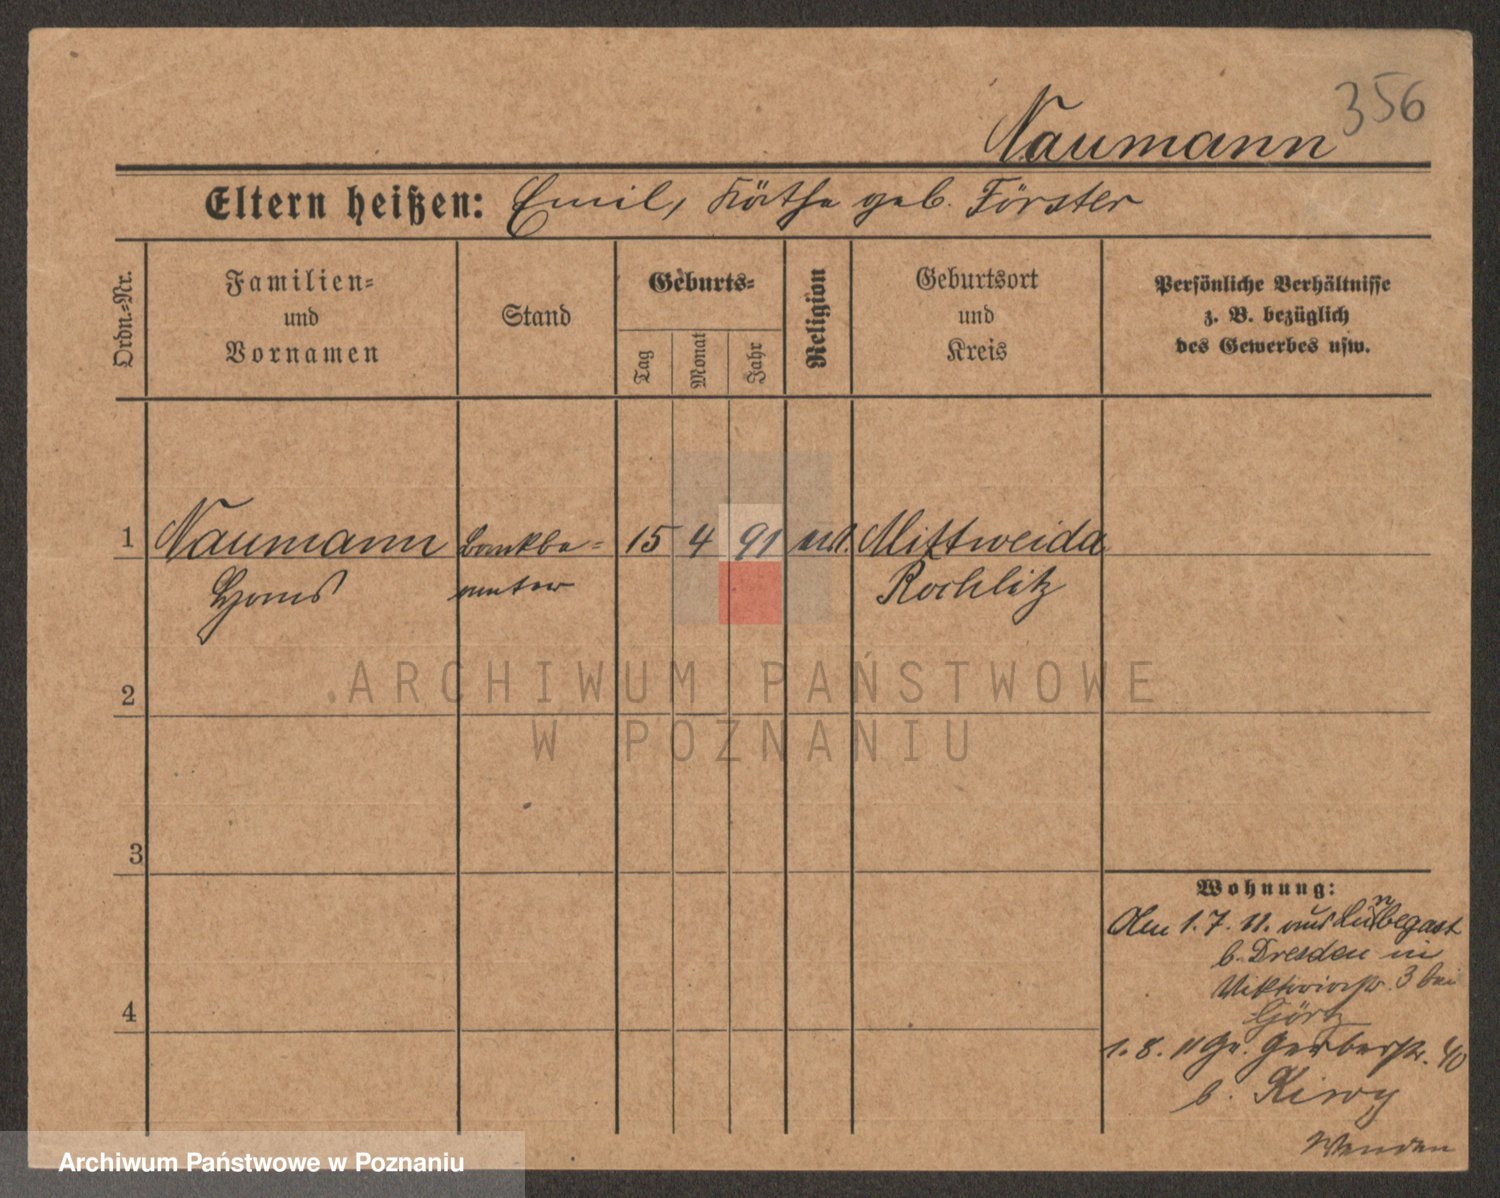 356
Naumann
Eltern heißen: Emil, Käthe geb. Förster
Ordn.-Nr.
Familien-
und
Vornamen
Stand
Geburts-
Tag
Monat
Jahr
Religion
Geburtsort
und
Kreis
Persönliche Verhältnisse
z. B. bezüglich
des Gewerbes usw.
1 Naumann Bankbe- 15 4 91 Mittweida
Hans amter Rochlitz
2
ARCHIWUM PAŃSTWOWE
W POZNANIU
3
Wohnung:
4
Am 1.7.11. aus
b. Dresden in
Viktoriastr. 3 bei
Görtz
1.8.11 Gr. Gerberstr. 40
b.
Wenden
Archiwum Państwowe w Poznaniu